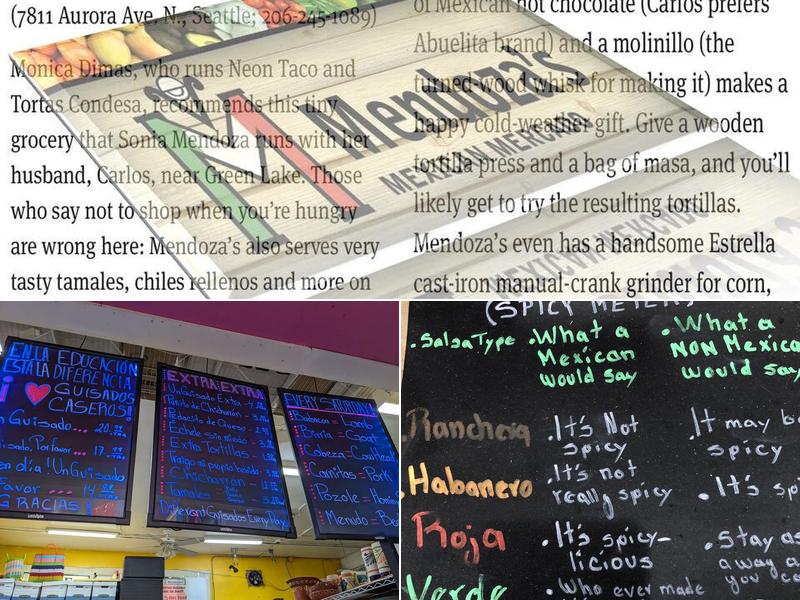 (7811 Aurora Ave. N., Seattle; 206-245-1089)
Monica Dimas, who runs Neon Taco and
Tortas Condesa, recommends this tiny
grocery that Sonia Mendoza runs with her
husband, Carlos, near Green Lake. Those
who say not to shop when you're hungry
are wrong here: Mendoza's also serves very
tasty tamales, chiles rellenos and more on
of Mexican hot chocolate (Carlos prefers
Abuelita brand) and a molinillo (the
turned-wood whisk for making it) makes a
happy cold-weather gift. Give a wooden
tortilla press and a bag of masa, and you'll
likely get to try the resulting tortillas.
Mendoza's even has a handsome Estrella
cast-iron manual-crank grinder for corn,
M Mendoza's
MEXICAN MERCADO
EN LA EDUCACION
ESTA LA DIFERENCIA
i ❤ GUISADOS
CASEROS!!
Guisado... 20.99
Guisado, Por favor... 17.
en día! Un Guisado
Favor ... 14
GRACIAS!
EXTRA! EXTRA
Un Guisado Extra
Punto de Chicharrón
Pedacito de Queso
Échele sin miedo
Extra Tortillas
Traigo mi propia bebida
Chicharrón
Tamales
Different Guisados Every Day
EVERY SATURDAY
Babacoa = Lamb
Birria = Goat
Cabeza = Cowhead
Carnitas = Pork
Pozole = Hominy
Menudo = Bee
(SPICY METER)
. Salsa Type . What a Mexican would say . What a NON Mexica would say
Ranchera . It's Not spicy It may b spicy
. Habanero . It's not really spicy . It's spi
Roja . It's spicy-licious . Stay as away a you ca
Verde . Who ever made